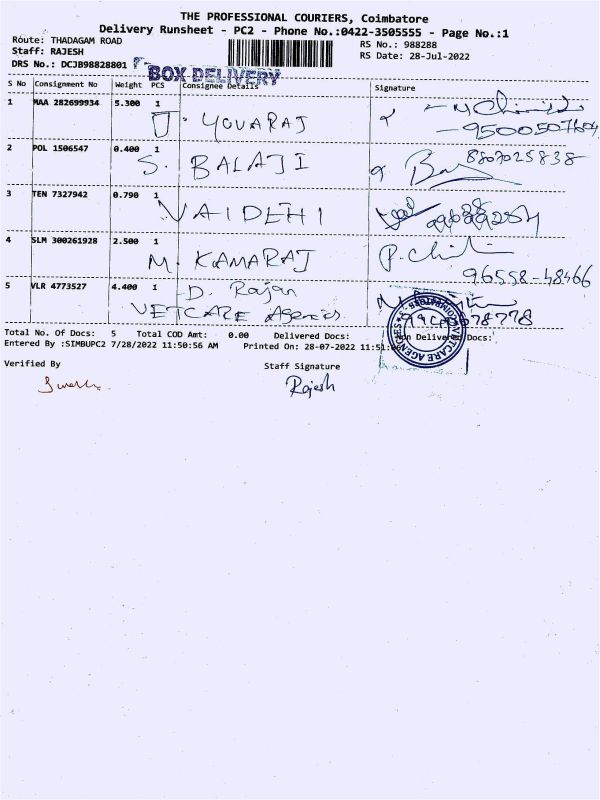 THE PROFESSIONAL COURIERS, Coimbatore
Delivery Runsheet - PC2 - Phone No.:0422-3505555 - Page No.:1
Route: THADAGAM ROAD
RS No.: 988288
Staff: RAJESH
RS Date: 28-Jul-2022
DRS No.: DCJB98828801
BOX DELIVERY
S No Consignment No Weight PCS Consignee Details Signature
1 MAA 282699934 5.300 1
J. YOUARAJ
2 POL 1506547 0.400 1
S. BALAJI
8807025838
3 TEN 7327942 0.790 1
VAIDEHI
4 SLM 300261928 2.500 1
M. KAMARAJ
96558-48466
5 VLR 4773527 4.400 1
D. Rajan
VETCARE Agencies.
VETCARE AGENCIES COIMBATORE
Total No. Of Docs: 5 Total COD Amt: 0.00 Delivered Docs: Non Delivered Docs:
Entered By :SIMBUPC2 7/28/2022 11:50:56 AM Printed On: 28-07-2022 11:51
Verified By Staff Signature
Rajesh